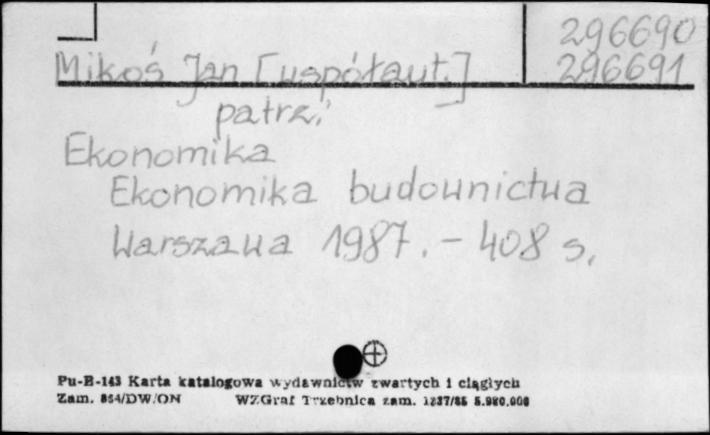 296690
Mikoś Jan [współaut.] 296691
patrz:
Ekonomika
Ekonomika budownictwa
Warszawa 1987. - 408 s.
Pu-B-143 Karta katalogowa wydawnictw zwartych i ciągłych
Zam. 854/DW/ON WZGraf Trzebnica zam. 1237/85 5.980.000